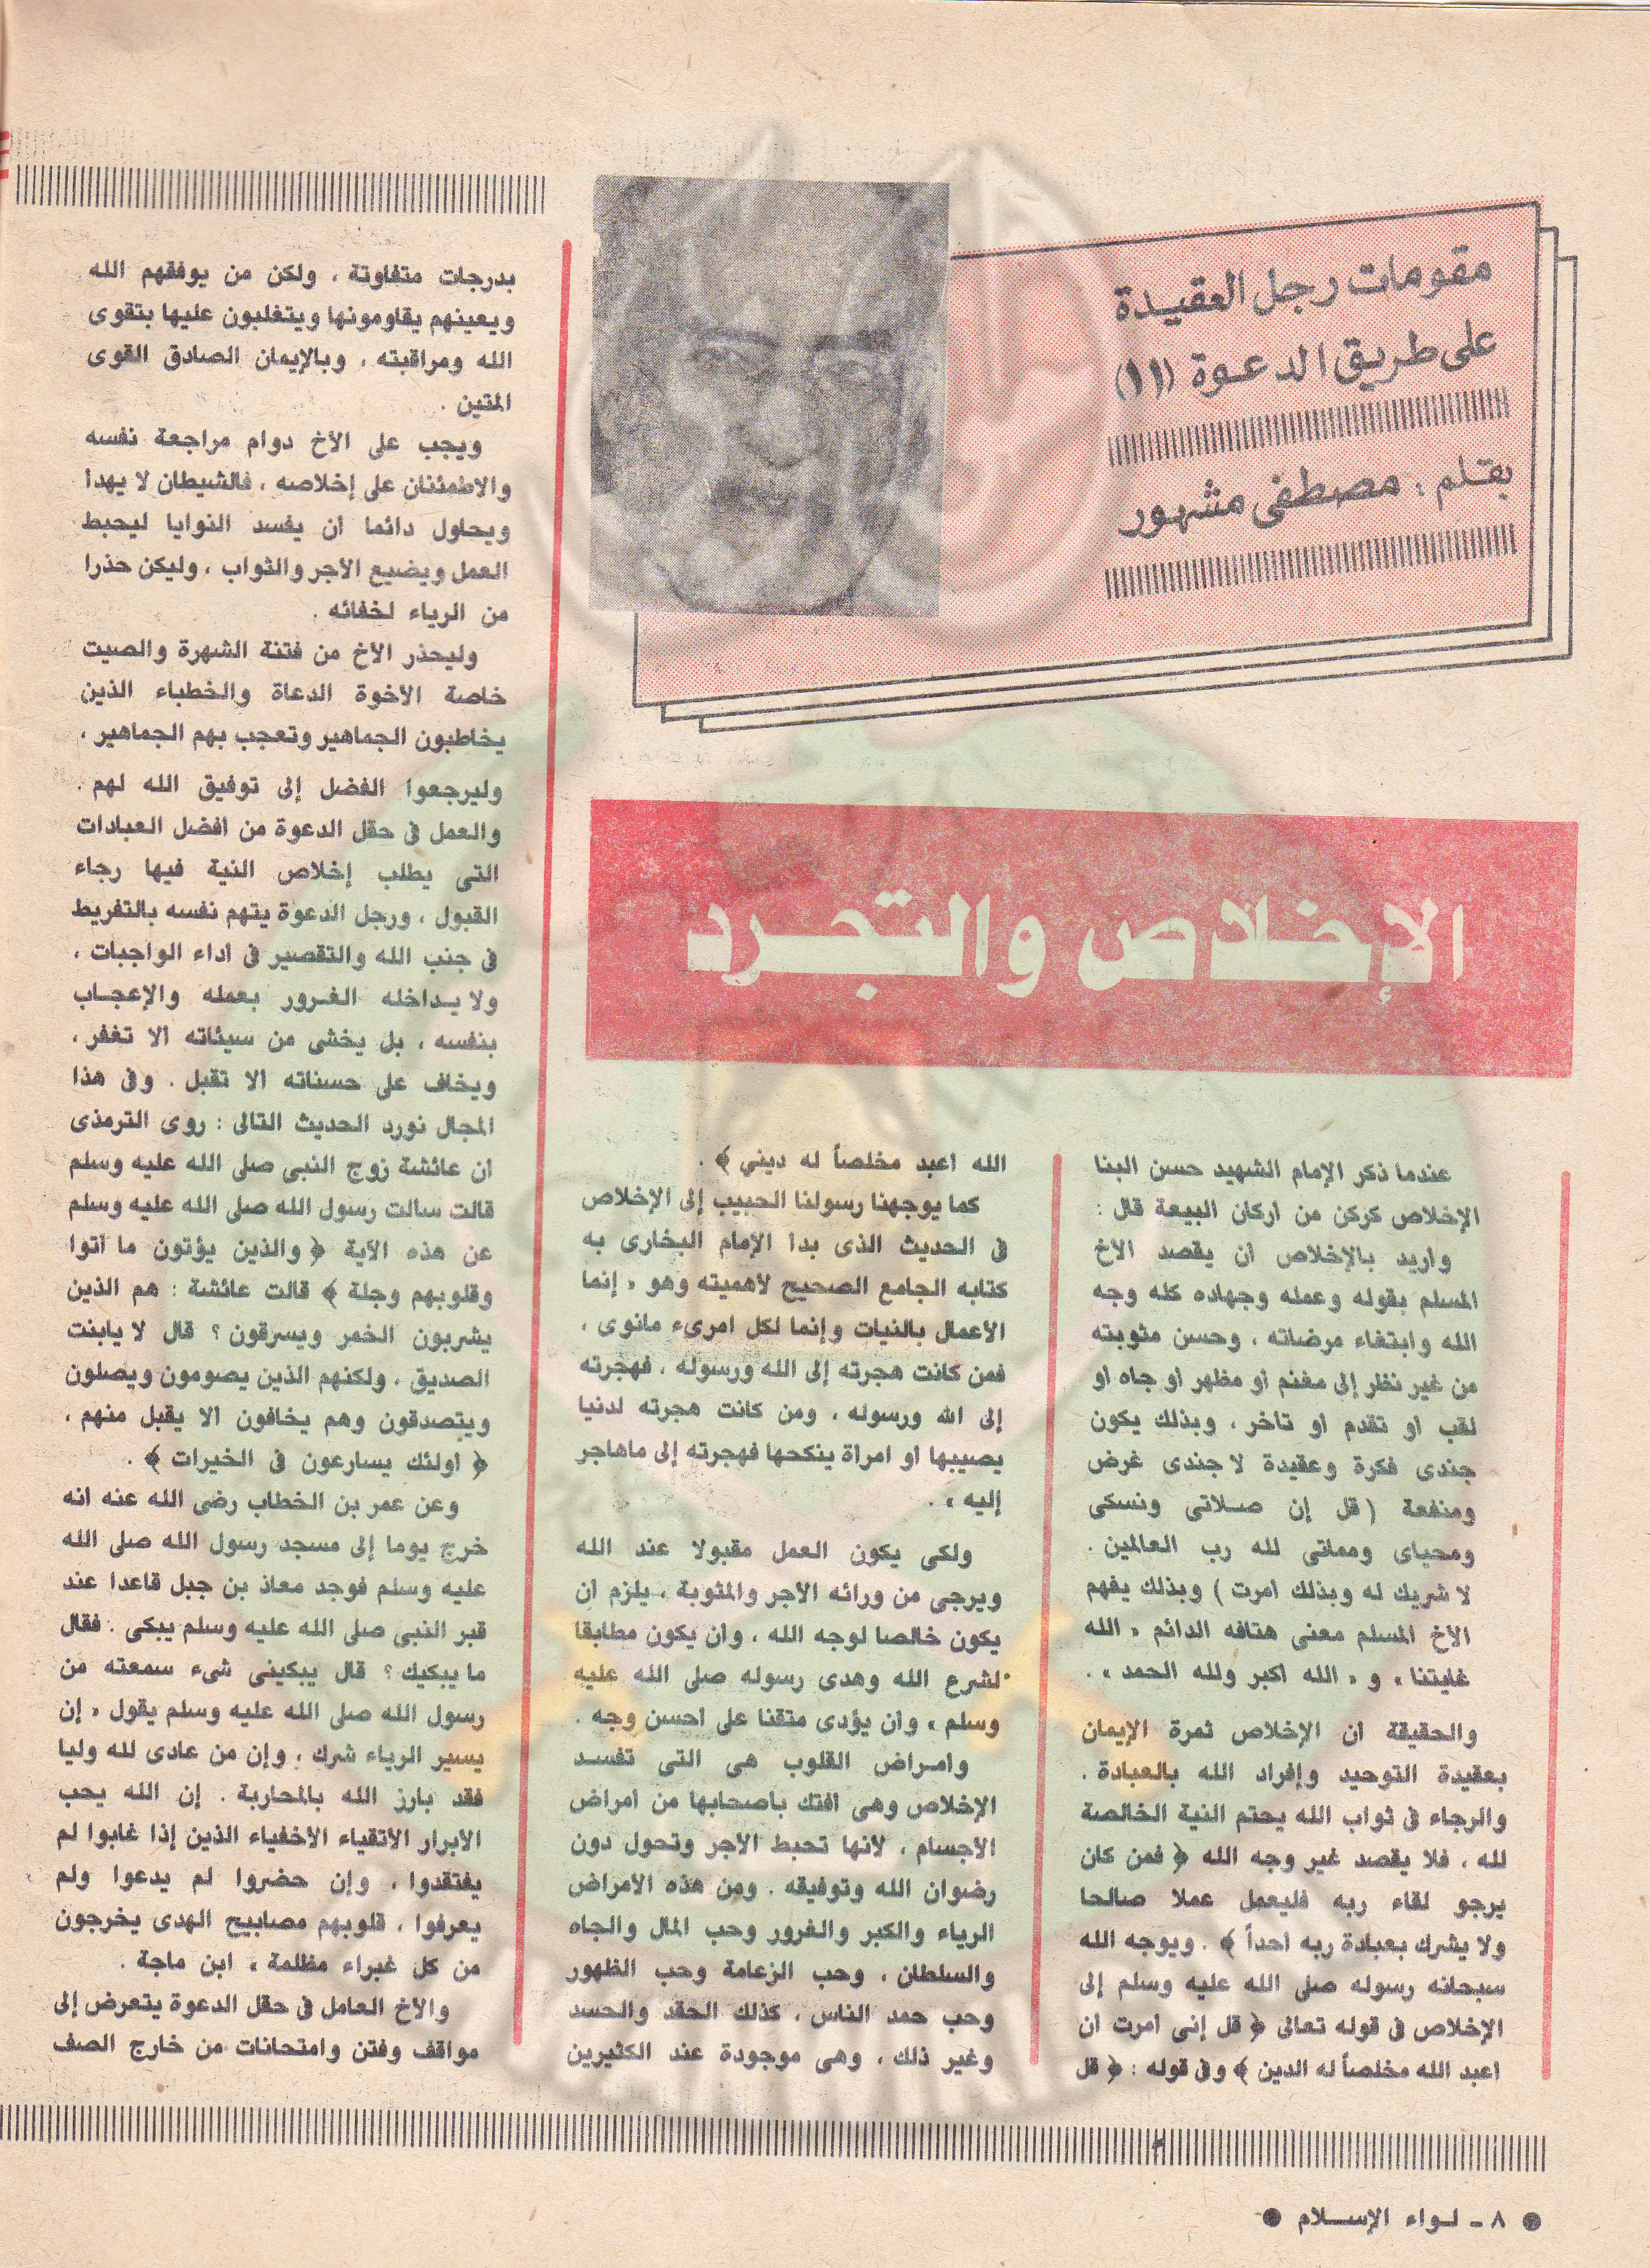 مقومات رجل العقيدة
على طريق الدعوة (١١)
بقلم : مصطفى مشهور
الإخلاص والتجرد
عندما ذكر الإمام الشهيد حسن البنا
الإخلاص كركن من اركان البيعة قال :
واريد بالإخلاص ان يقصد الاخ
المسلم بقوله وعمله وجهاده كله وجه
الله وابتغاء مرضاته ، وحسن مثوبته
من غير نظر إلى مغنم او مظهر او جاه او
لقب او تقدم او تاخر ، وبذلك يكون
جندى فكرة وعقيدة لا جندى غرض
ومنفعة ( قل إن صلاتى ونسكى
ومحياى ومماتى لله رب العالمين .
لا شريك له وبذلك امرت ) وبذلك يفهم
الاخ المسلم معنى هتافه الدائم « الله
غايتنا » و « الله اكبر ولله الحمد » .
والحقيقة ان الإخلاص ثمرة الإيمان
بعقيدة التوحيد وإفراد الله بالعبادة .
والرجاء فى ثواب الله يحتم النية الخالصة
لله ، فلا يقصد غير وجه الله ﴿ فمن كان
يرجو لقاء ربه فليعمل عملا صالحا
ولا يشرك بعبادة ربه احداً ﴾ . ويوجه الله
سبحانه رسوله صلى الله عليه وسلم إلى
الإخلاص فى قوله تعالى ﴿ قل إنى امرت ان
اعبد الله مخلصاً له الدين ﴾ وفى قوله : ﴿ قل
الله اعبد مخلصاً له ديني ﴾ .
كما يوجهنا رسولنا الحبيب إلى الإخلاص
فى الحديث الذى بدا الإمام البخارى به
كتابه الجامع الصحيح لاهميته وهو « إنما
الاعمال بالنيات وإنما لكل امرىء مانوى ،
فمن كانت هجرته إلى الله ورسوله ، فهجرته
إلى الله ورسوله ، ومن كانت هجرته لدنيا
يصيبها او امراة ينكحها فهجرته إلى ماهاجر
إليه » .
ولكى يكون العمل مقبولا عند الله
ويرجى من ورائه الاجر والمثوبة ، يلزم ان
يكون خالصا لوجه الله ، وان يكون مطابقا
لشرع الله وهدى رسوله صلى الله عليه
وسلم » وان يؤدى متقنا على احسن وجه .
وامراض القلوب هى التى تفسد
الإخلاص وهى افتك باصحابها من امراض
الاجسام ، لانها تحبط الاجر وتحول دون
رضوان الله وتوفيقه . ومن هذه الامراض
الرياء والكبر والغرور وحب المال والجاه
والسلطان ، وحب الزعامة وحب الظهور
وحب حمد الناس ، كذلك الحقد والحسد
وغير ذلك ، وهى موجودة عند الكثيرين
بدرجات متفاوتة ، ولكن من يوفقهم الله
ويعينهم يقاومونها ويتغلبون عليها بتقوى
الله ومراقبته ، وبالإيمان الصادق القوى
المتين .
ويجب على الاخ دوام مراجعة نفسه
والاطمئنان على إخلاصه ، فالشيطان لا يهدا
ويحاول دائما ان يفسد النوايا ليحبط
العمل ويضيع الاجر والثواب ، وليكن حذرا
من الرياء لخفائه .
وليحذر الاخ من فتنة الشهرة والصيت
خاصة الاخوة الدعاة والخطباء الذين
يخاطبون الجماهير وتعجب بهم الجماهير ،
وليرجعوا الفضل إلى توفيق الله لهم .
والعمل فى حقل الدعوة من افضل العبادات
التى يطلب إخلاص النية فيها رجاء
القبول ، ورجل الدعوة يتهم نفسه بالتفريط
فى جنب الله والتقصير فى اداء الواجبات ،
ولا يداخله الغرور بعمله والإعجاب
بنفسه ، بل يخشى من سيئاته الا تغفر ،
ويخاف على حسناته الا تقبل . وفى هذا
المجال نورد الحديث التالى : روى الترمذى
ان عائشة زوج النبى صلى الله عليه وسلم
قالت سالت رسول الله صلى الله عليه وسلم
عن هذه الآية ﴿ والذين يؤتون ما آتوا
وقلوبهم وجلة ﴾ قالت عائشة : هم الذين
يشربون الخمر ويسرقون ؟ قال لا يابنت
الصديق ، ولكنهم الذين يصومون ويصلون
ويتصدقون وهم يخافون الا يقبل منهم ،
﴿ اولئك يسارعون فى الخيرات ﴾ .
وعن عمر بن الخطاب رضى الله عنه انه
خرج يوما إلى مسجد رسول الله صلى الله
عليه وسلم فوجد معاذ بن جبل قاعدا عند
قبر النبى صلى الله عليه وسلم يبكى . فقال
ما يبكيك ؟ قال يبكينى شىء سمعته من
رسول الله صلى الله عليه وسلم يقول « إن
يسير الرياء شرك ، وإن من عادى لله وليا
فقد بارز الله بالمحاربة . إن الله يحب
الابرار الاتقياء الاخفياء الذين إذا غابوا لم
يفتقدوا ، وإن حضروا لم يدعوا ولم
يعرفوا ، قلوبهم مصابيح الهدى يخرجون
من كل غبراء مظلمة » ابن ماجة .
والاخ العامل فى حقل الدعوة يتعرض إلى
مواقف وفتن وامتحانات من خارج الصف
● ٨ - لواء الإسلام ●